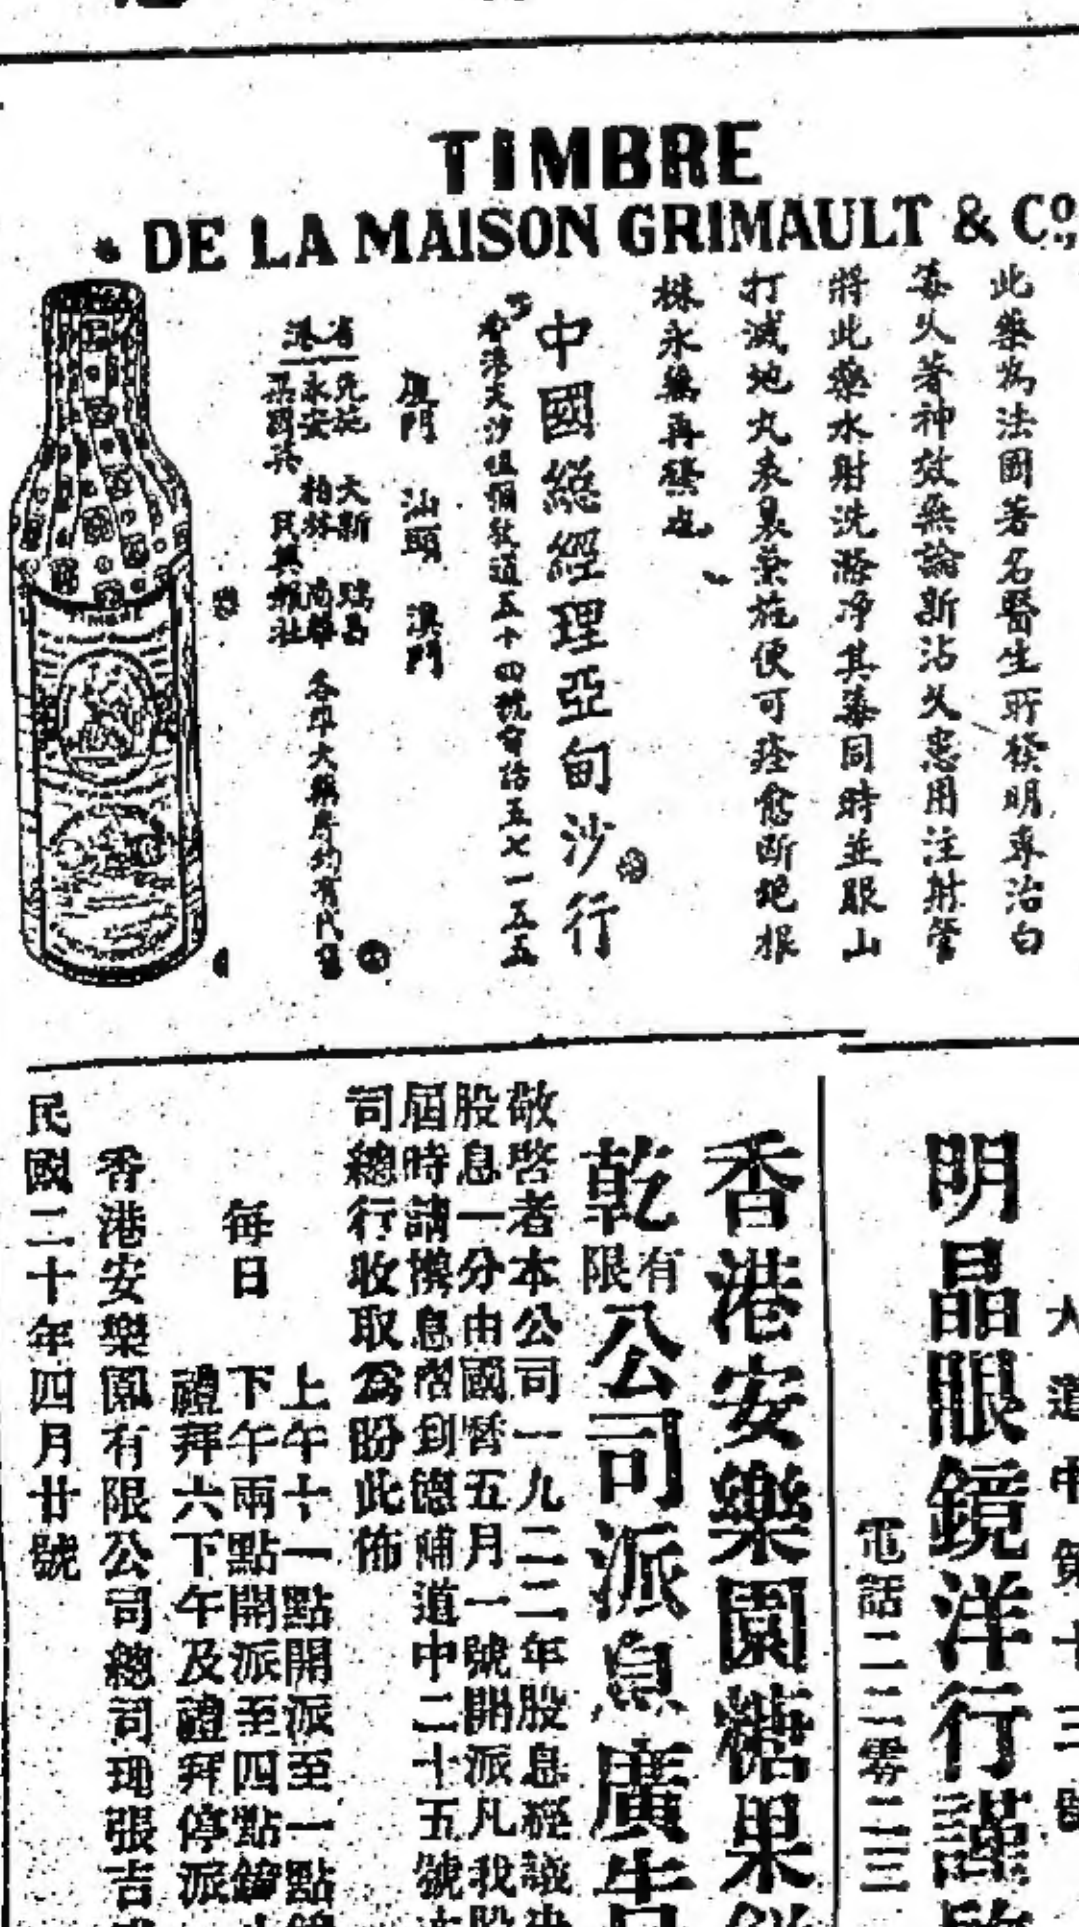 TIMBRE
DE LA MAISON GRIMAULT & Cº,
此藥為法國著名醫生所發明專治白
毒久著神效無論新沾久患用注射管
將此藥水射洗滌净其毒同時並服山
打滅地丸表裏兼施便可痊愈斷絕根
株永無再發也
中國總經理亞甸沙行
香港夫沙道五十四號電話五七一五五
廈門 汕頭 澳門
省港
先施 天新 瑞昌
永安 柏林 各埠大藥房均有代售
明晶眼鏡洋行謹啟
電話二二零二三
大道中第十三號
香港安樂園糖果餅
乾有限公司派息廣告
敬啓者本公司一九二二年股息經議決
股息一分由國曆五月一號開派凡我股
屆時請携息摺到德輔道中二十五號
司總行收取為盼此佈
每日
上午十一點開派至一點鐘
下午兩點開派至四點鐘
禮拜六下午及禮拜停派
香港安樂園有限公司總司理張吉
民國二十年四月廿號